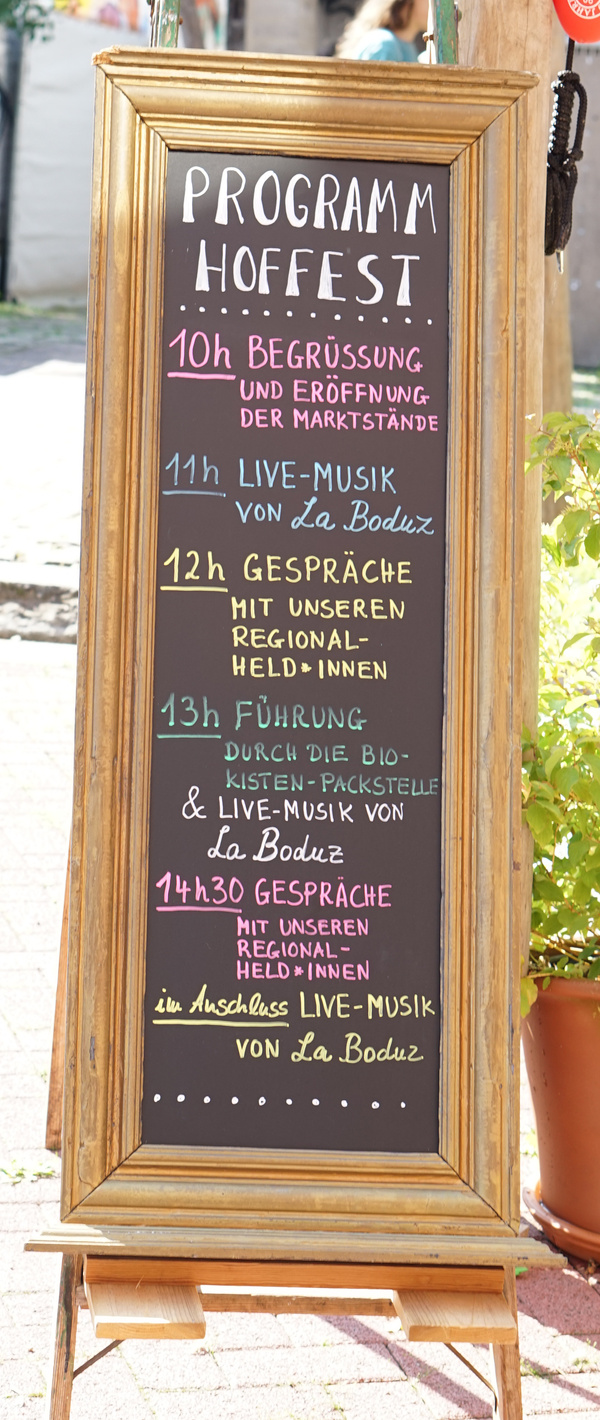 PROGRAMM
HOFFEST
10h BEGRÜSSUNG
UND ERÖFFNUNG
DER MARKTSTÄNDE
11h LIVE-MUSIK
VON La Boduz
12h GESPRÄCHE
MIT UNSEREN
REGIONAL-
HELD*INNEN
13h FÜHRUNG
DURCH DIE BIO-
KISTEN-PACKSTELLE
& LIVE-MUSIK VON
La Boduz
14h30 GESPRÄCHE
MIT UNSEREN
REGIONAL-
HELD*INNEN
im Anschluss LIVE-MUSIK
VON La Boduz